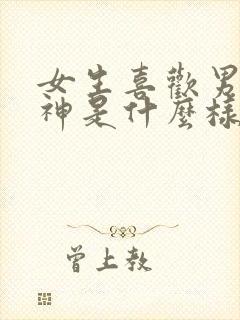 女生喜歡男
神是什麼樣
曾上教